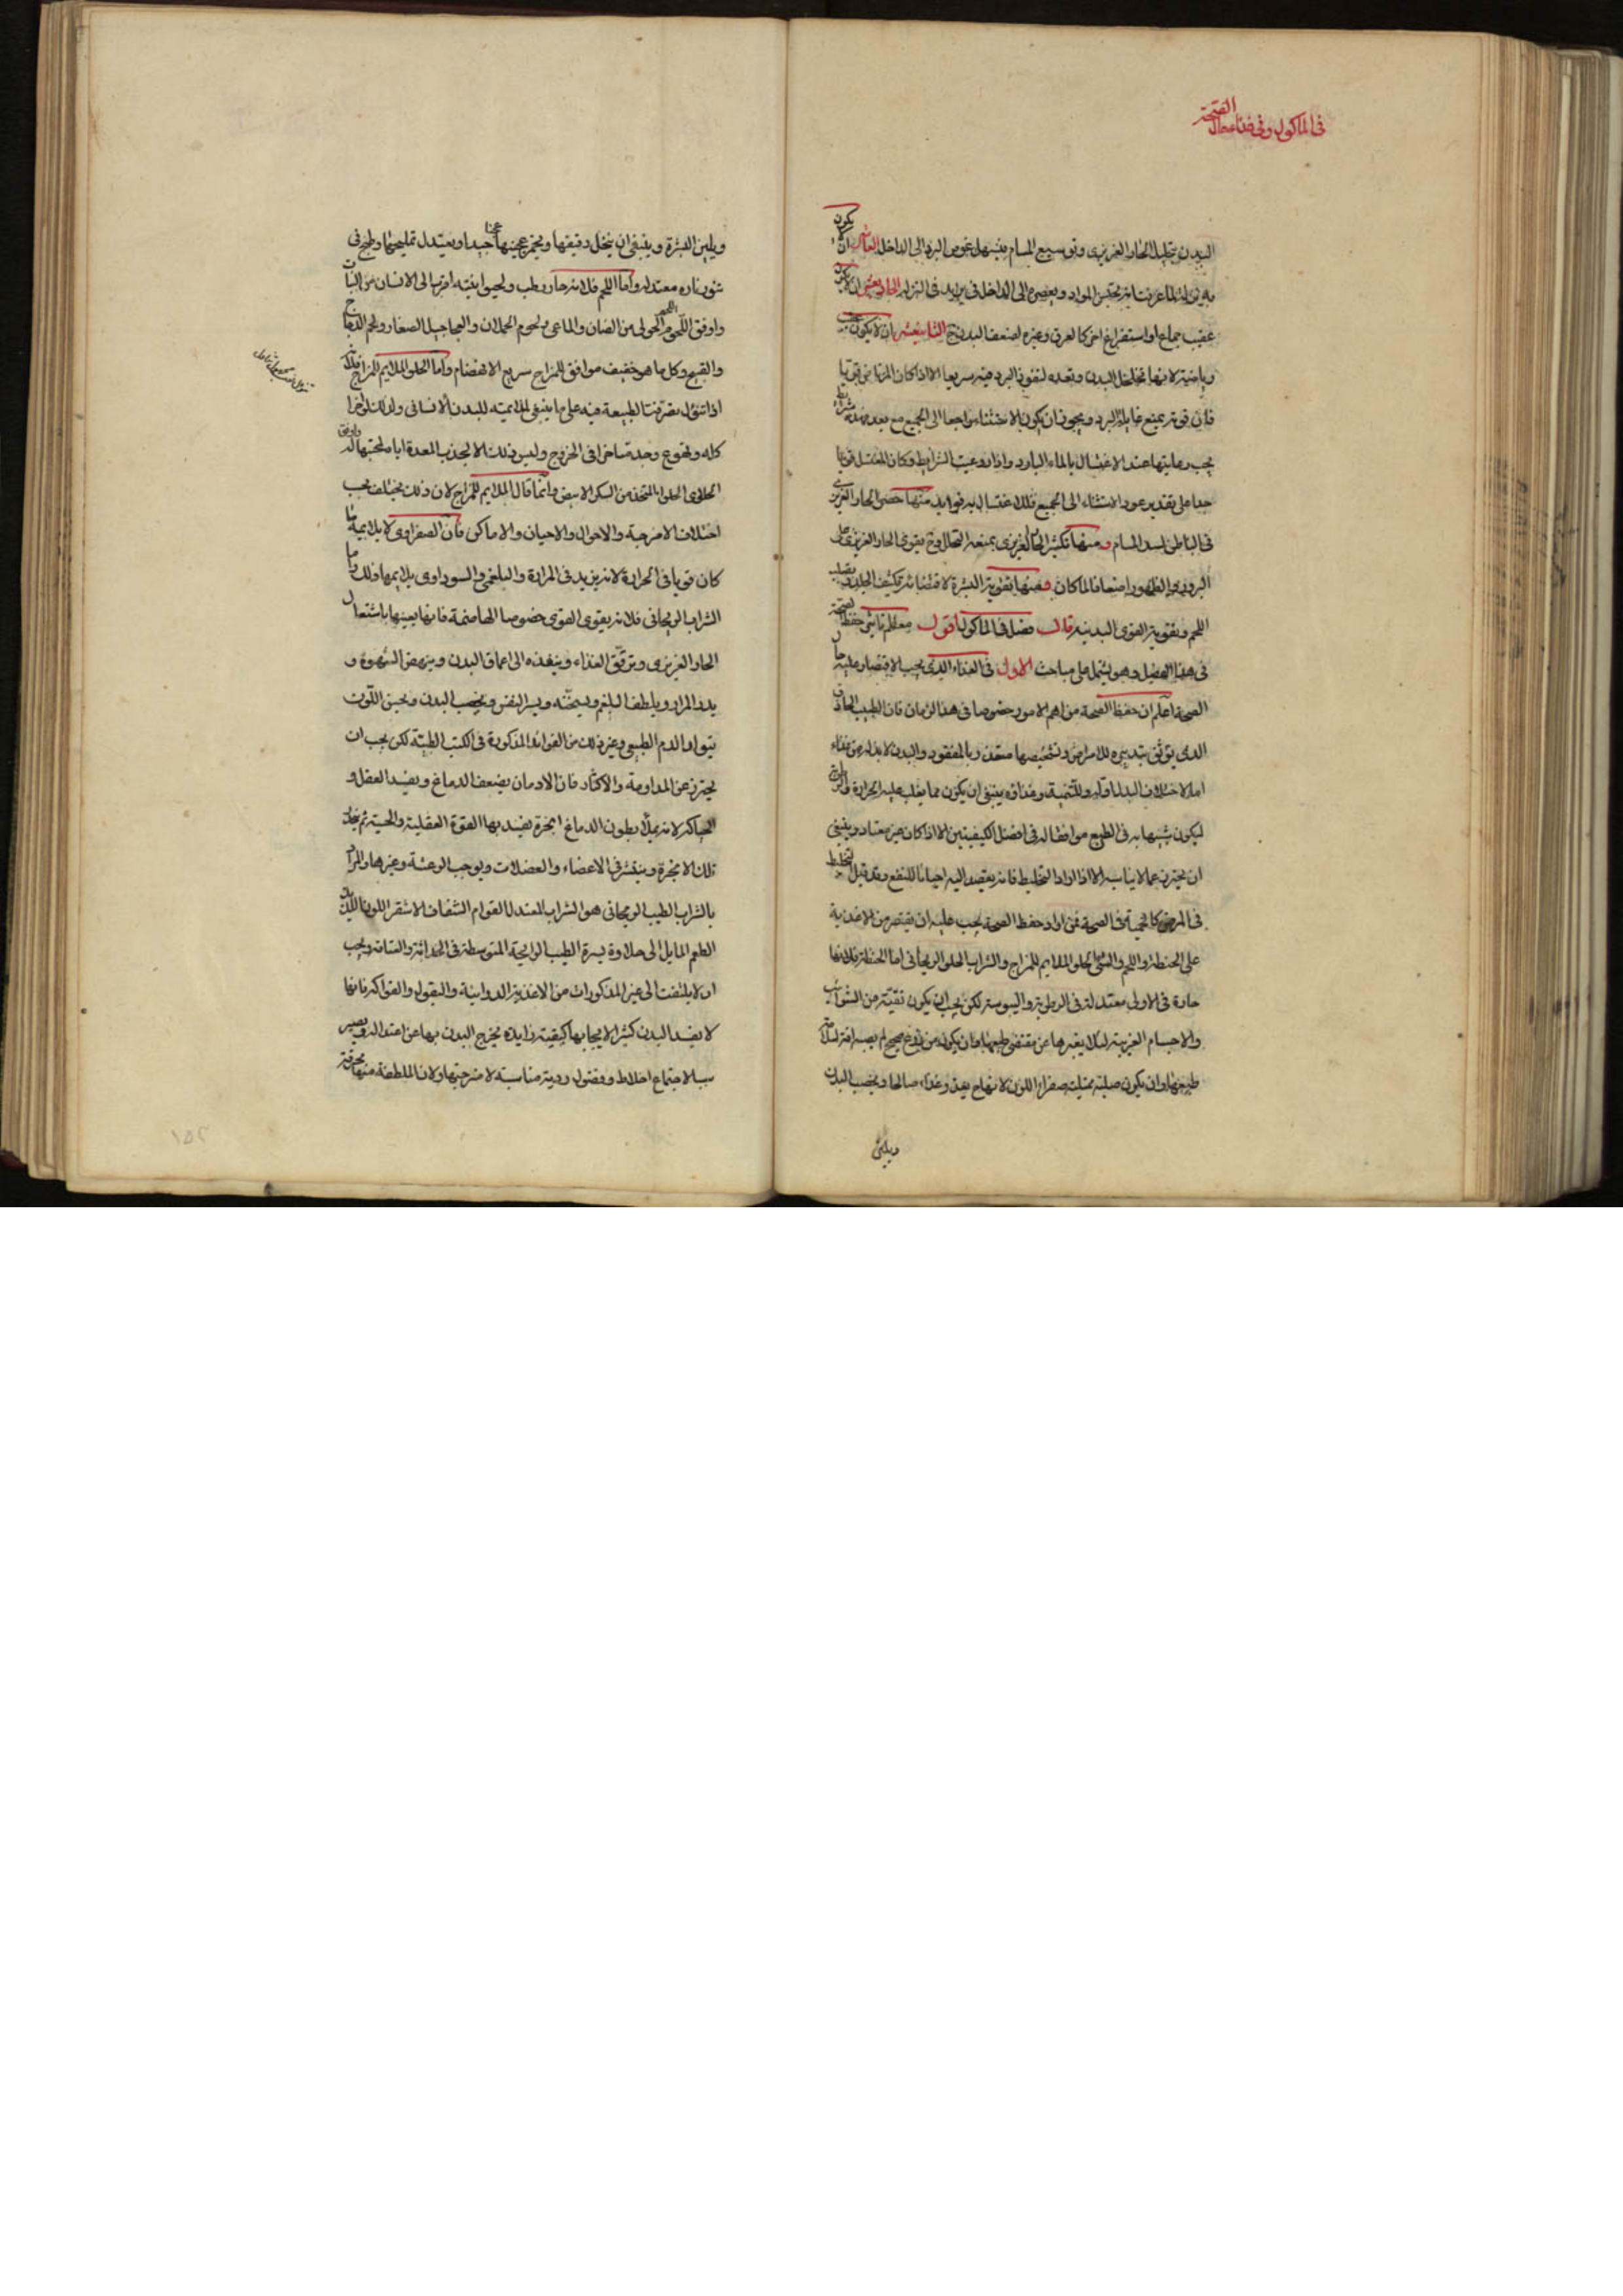 فى الماكول وفى فناء حفظ الصحة
البدن بتحليل الحار الغريزى وتوسيع المسام فيسهل غوص البرد الى الداخل العاشر ان لا يكون
به نزلة لما عرفت انه يحبس المواد ويعصره الى الداخل فيزيد فى النزلة الحادى عشر ان لا يكون
عقيب جماع او استفراغ اخر كالعرق وغيره لضعف البدن ح الثانى عشر ان لا يكون عقيب
رياضة لانها تخلخل البدن وتعده لنفوذ البرد فيه سريعا الا اذا كان المرتاض قويا
فان قوته يمنع غايلة البرد ويجوز ان يكون الاستثناء راجعا الى الجميع مع بعد فهذه شرايط
يجب رعايتها عند الاغتسال بالماء البارد واذا روعيت الشرايط وكان المغتسل قويا
جدا على تقدير عود الاستثناء الى الجميع فللاغتسال به فوايد منها حصر الحار الغريزى
فى الباطن لسد المسام ومنها تكثير الحار الغريزى بمنعه التحلل وح يقوى الحار الغريزى على
البروز والظهور اضعاف ما كان ومنها تقوية البشرة لاقتضائه تكثيف الجلد وتصليب
اللحم وتقوية القوى البدنية قال فصل فى الماكول اقول معظم تاثير حفظ الصحة
فى هذا الفصل وهو يشتمل على مباحث الاول فى الغذاء الذى يجب الاقتصار عليه حال
الصحة اعلم ان حفظ الصحة من اهم الامور خصوصا فى هذا الزمان فان الطبيب الحاذق
الذى يوثق بتدبيره للامراض وتشخيصها متعذر بالمفقود والبدن لابد له من غذاء
اما لاخلاف البدل او له وللتنمية وغذاؤه ينبغى ان يكون مما يغلب عليه الحرارة والرطوبة
ليكون شبيها به فى الطبع موافقا له فى افضل الكيفيتين الا اذا كان غير معتاد وينبغى
ان يحترز عما لا يناسبه الا اذا اراد التخليط فانه يقصد اليه احيانا للنفع وقد قيل التخليط
فى المرض كالحمية فى الصحة فمن اراد حفظ الصحة يجب عليه ان يقتصر من الاغذية
على الحنطة واللحم والشئ الحلو الملايم للمزاج والشراب الحلو الريحانى اما الحنطة فلانها
حارة فى الاولى معتدلة فى الرطوبة واليبوسة لكن يجب ان يكون نقية من الشوائب
والاجسام الغريبة لئلا يغيرها عن مقتضى طبعها وان يكون من زرع صحيح لم يصبه افة لسلامة
طبعها وان يكون صلبة ممتلية صفراء اللون لانها ح يغذو غذاء صالحا ويخصب البدن
ويلين
ويلين البشرة وينبغى ان ينخل دقيقها ويخمر عجينها عجنا جيدا ويعتدل تمليحها وطبخ فى
تنور ناره معتدلة واما اللحم فلانه حار رطب ولحيوانيته اقرب الى الانسان من النبات
واوفق اللحوم لحم الحولى من الضان والماعز ولحوم الحملان والعجاجيل الصغار ولحم الدجاج
والقبج وكل ما هو خفيف موافق للمزاج سريع الانهضام واما الحلو الملايم للمزاج فلانه
اذا تنوول تصرفت الطبيعة فيه على ما ينبغى لملايمته للبدن الانسانى ولذلك لو اخر
كله وقع وجد متاخرا فى الخروج وليس ذلك الا لجذب المعدة اياه لمحبتها له واوفق
الحلاوى الحلواء المتخذ من السكر الابيض وانما قال الملايم للمزاج لان ذلك يختلف بحسب
اختلاف الامزجة والاحوال والاحيان والاماكن فان الصفراوى لا يلايمه ما
كان قويا فى الحرارة لانه يزيد فى المرارة والبلغمى والسوداوى يلايمها ذلك واما
الشراب الريحانى فلانه يقوى القوى خصوصا الهاضمة فانها يعينها باشتعال
الحار الغريزى ويرقق الغذاء وينفذه الى اعماق البدن وينهض الشهوة و
يدر المرار ويلطف البلغم ويسخنه ويسر النفس ويخصب البدن ويحسن اللون
بتولد الدم الطبيعى وغير ذلك من الفوائد المذكورة فى الكتب الطبية لكن يجب ان
يحترز عن المداومة والاكثار فان الادمان يضعف الدماغ ويفسد العقل و
الحياكم لانه يملأ بطون الدماغ ابخرة يفسد بها القوة العقلية والحسية ثم ينحل
تلك الابخرة وينتشر فى الاعضاء والعضلات ويوجب الرعشة وغيرها والمراد
بالشراب الطيب الريحانى هو الشراب المعتدل القوام الشفاف الاشقر اللون اللذيذ
الطعم المايل الى حلاوة يسيرة الطيب الرايحة المتوسطة فى الحداثة والعتاقة ويجب
ان لا يلتفت الى غير المذكورات من الاغذية الدوائية والبقول والفواكه فانها
لا يفسد البدن كثيرا لايجابها كيفية زايدة يخرج البدن بها عن اعتداله ويصير
سببا لاجتماع اخلاط وفضول ردية مناسبة لامزجتها ولان الملطفة منها محرقة